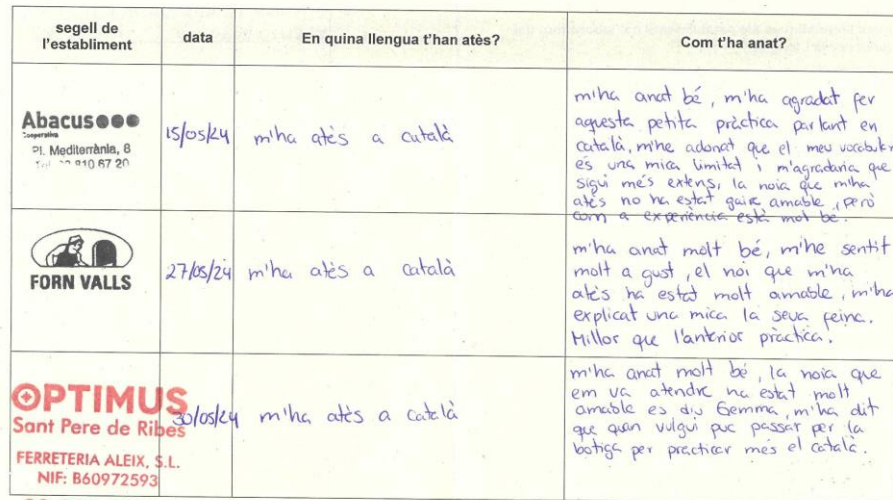 segell de
l'establiment
data
En quina llengua t'han atès?
Com t'ha anat?
Abacus
Cooperativa
Pl. Mediterrània, 8
810 67 20
15/05/24
m'ha atès a català
m'ha anat bé, m'ha agradat fer
aquesta petita pràctica parlant en
català, m'he adonat que el meu vocabulari
és una mica limitat i m'agradaria que
sigui més extens, la noia que m'ha
atès no ha estat gaire amable, però
com a experiència està mot bé.
FORN VALLS
27/05/24
m'ha atès a català
m'ha anat molt bé, m'he sentit
molt a gust, el noi que m'ha
atès ha estat molt amable, m'ha
explicat una mica la seva feina.
Millor que l'anterior pràctica.
OPTIMUS
Sant Pere de Ribes
FERRETERIA ALEIX, S.L.
NIF: B60972593
30/05/24
m'ha atès a català
m'ha anat molt bé, la noia que
em va atendre ha estat molt
amable es diu Gemma, m'ha dit
que quan vulgui puc passar per la
botiga per practicar més el català.